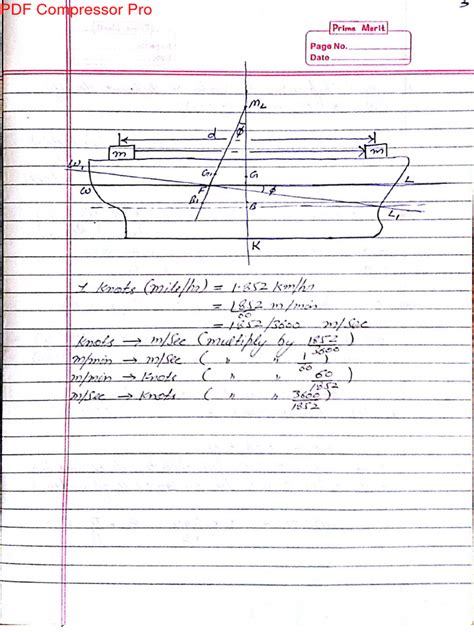 PDF Compressor Pro
3
Prime Merit
Page No.
Date
M_L
φ
d
m
m
W₁
G₁
G
L
W
F
φ
B₁
B
L₁
K
1 Knots (mile/hr) = 1.852 Km/hr
= 1852/60 m/min
= 1852/3600 m/sec
Knots → m/sec (multiply by 1852/3600)
m/min → m/sec ( " " 1/60 )
m/min → Knots ( " " 60/1852 )
m/sec → Knots ( " " 3600/1852 )